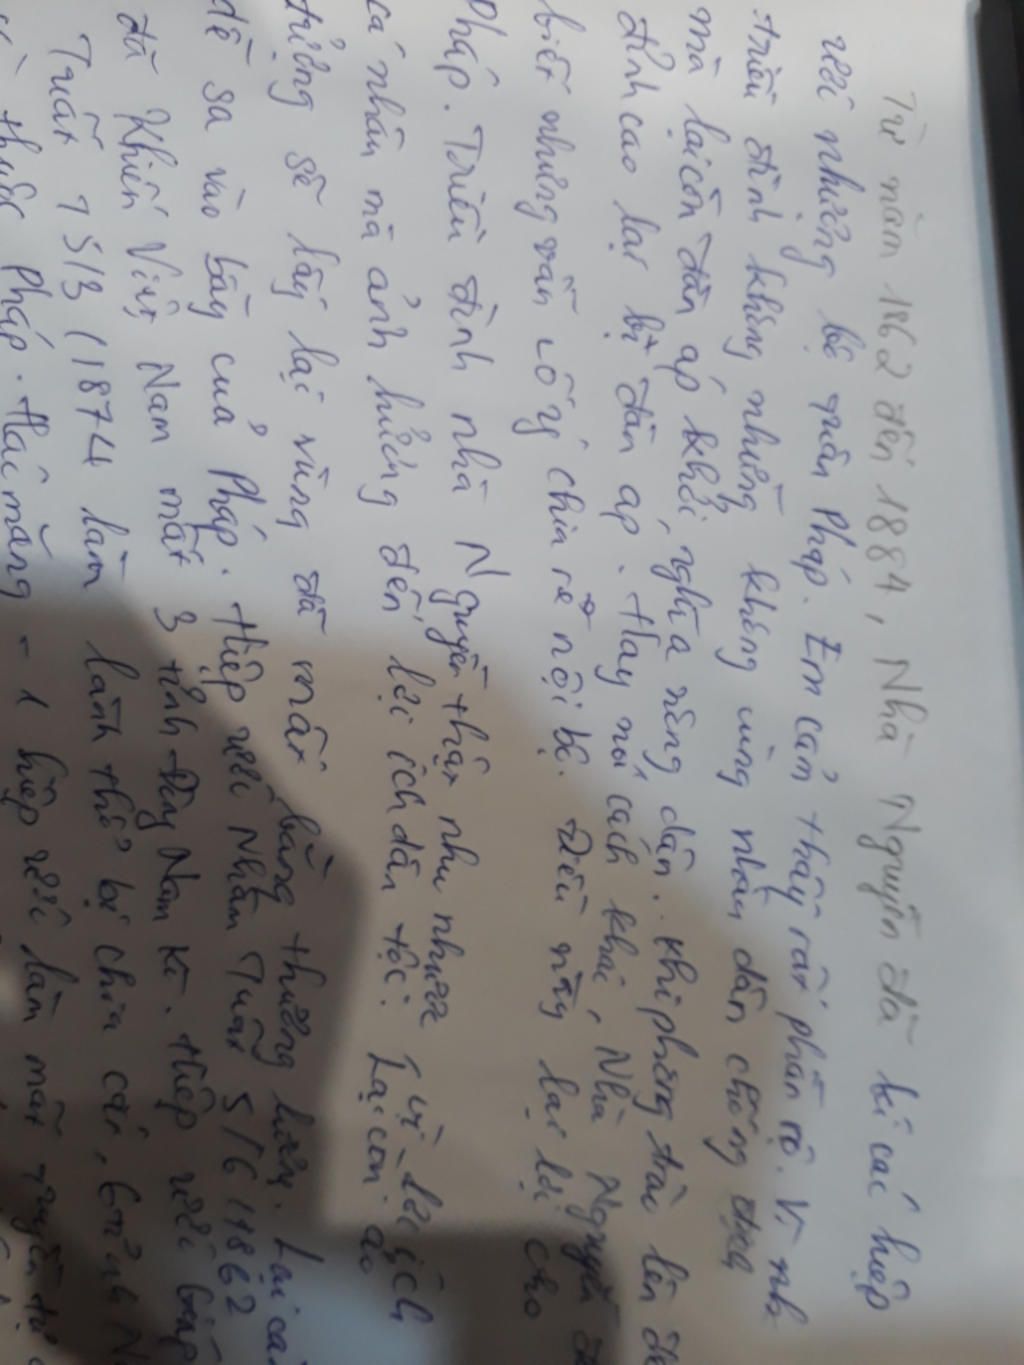 Từ năm 1862 đến 1884, Nhà Nguyễn đã kí các hiệp
ước nhượng bộ quân Pháp. Em cảm thấy rất phẫn nộ. Vì nh
triều đình không những không cùng nhân dân chống địch
mà lại còn đàn áp khởi nghĩa nông dân. Khi phong trào lên
đỉnh cao lại bị đàn áp. Hay nói cách khác, Nhà Nguyễn
biết nhưng vẫn cố ý chia rẽ nội bộ. Điều này lại lợi cho
Pháp. Triều đình nhà Nguyễn thật nhu nhược vì lợi ích
cá nhân mà ảnh hưởng đến lợi ích dân tộc. Lại còn ảo
tưởng sẽ lấy lại vùng đã mất bằng thương lượng.
để sa vào bẫy của Pháp. Hiệp ước Nhâm Tuất 5/6/1862
đã khiến Việt Nam mất 3 tỉnh Đông Nam Kì. Hiệp ước Giáp
Tuất 15/3/1874 làm lãnh thổ bị chia cắt, 6 tỉnh N
thuộc Pháp. Hác măng - 1 hiệp ước làm mất quyền tự